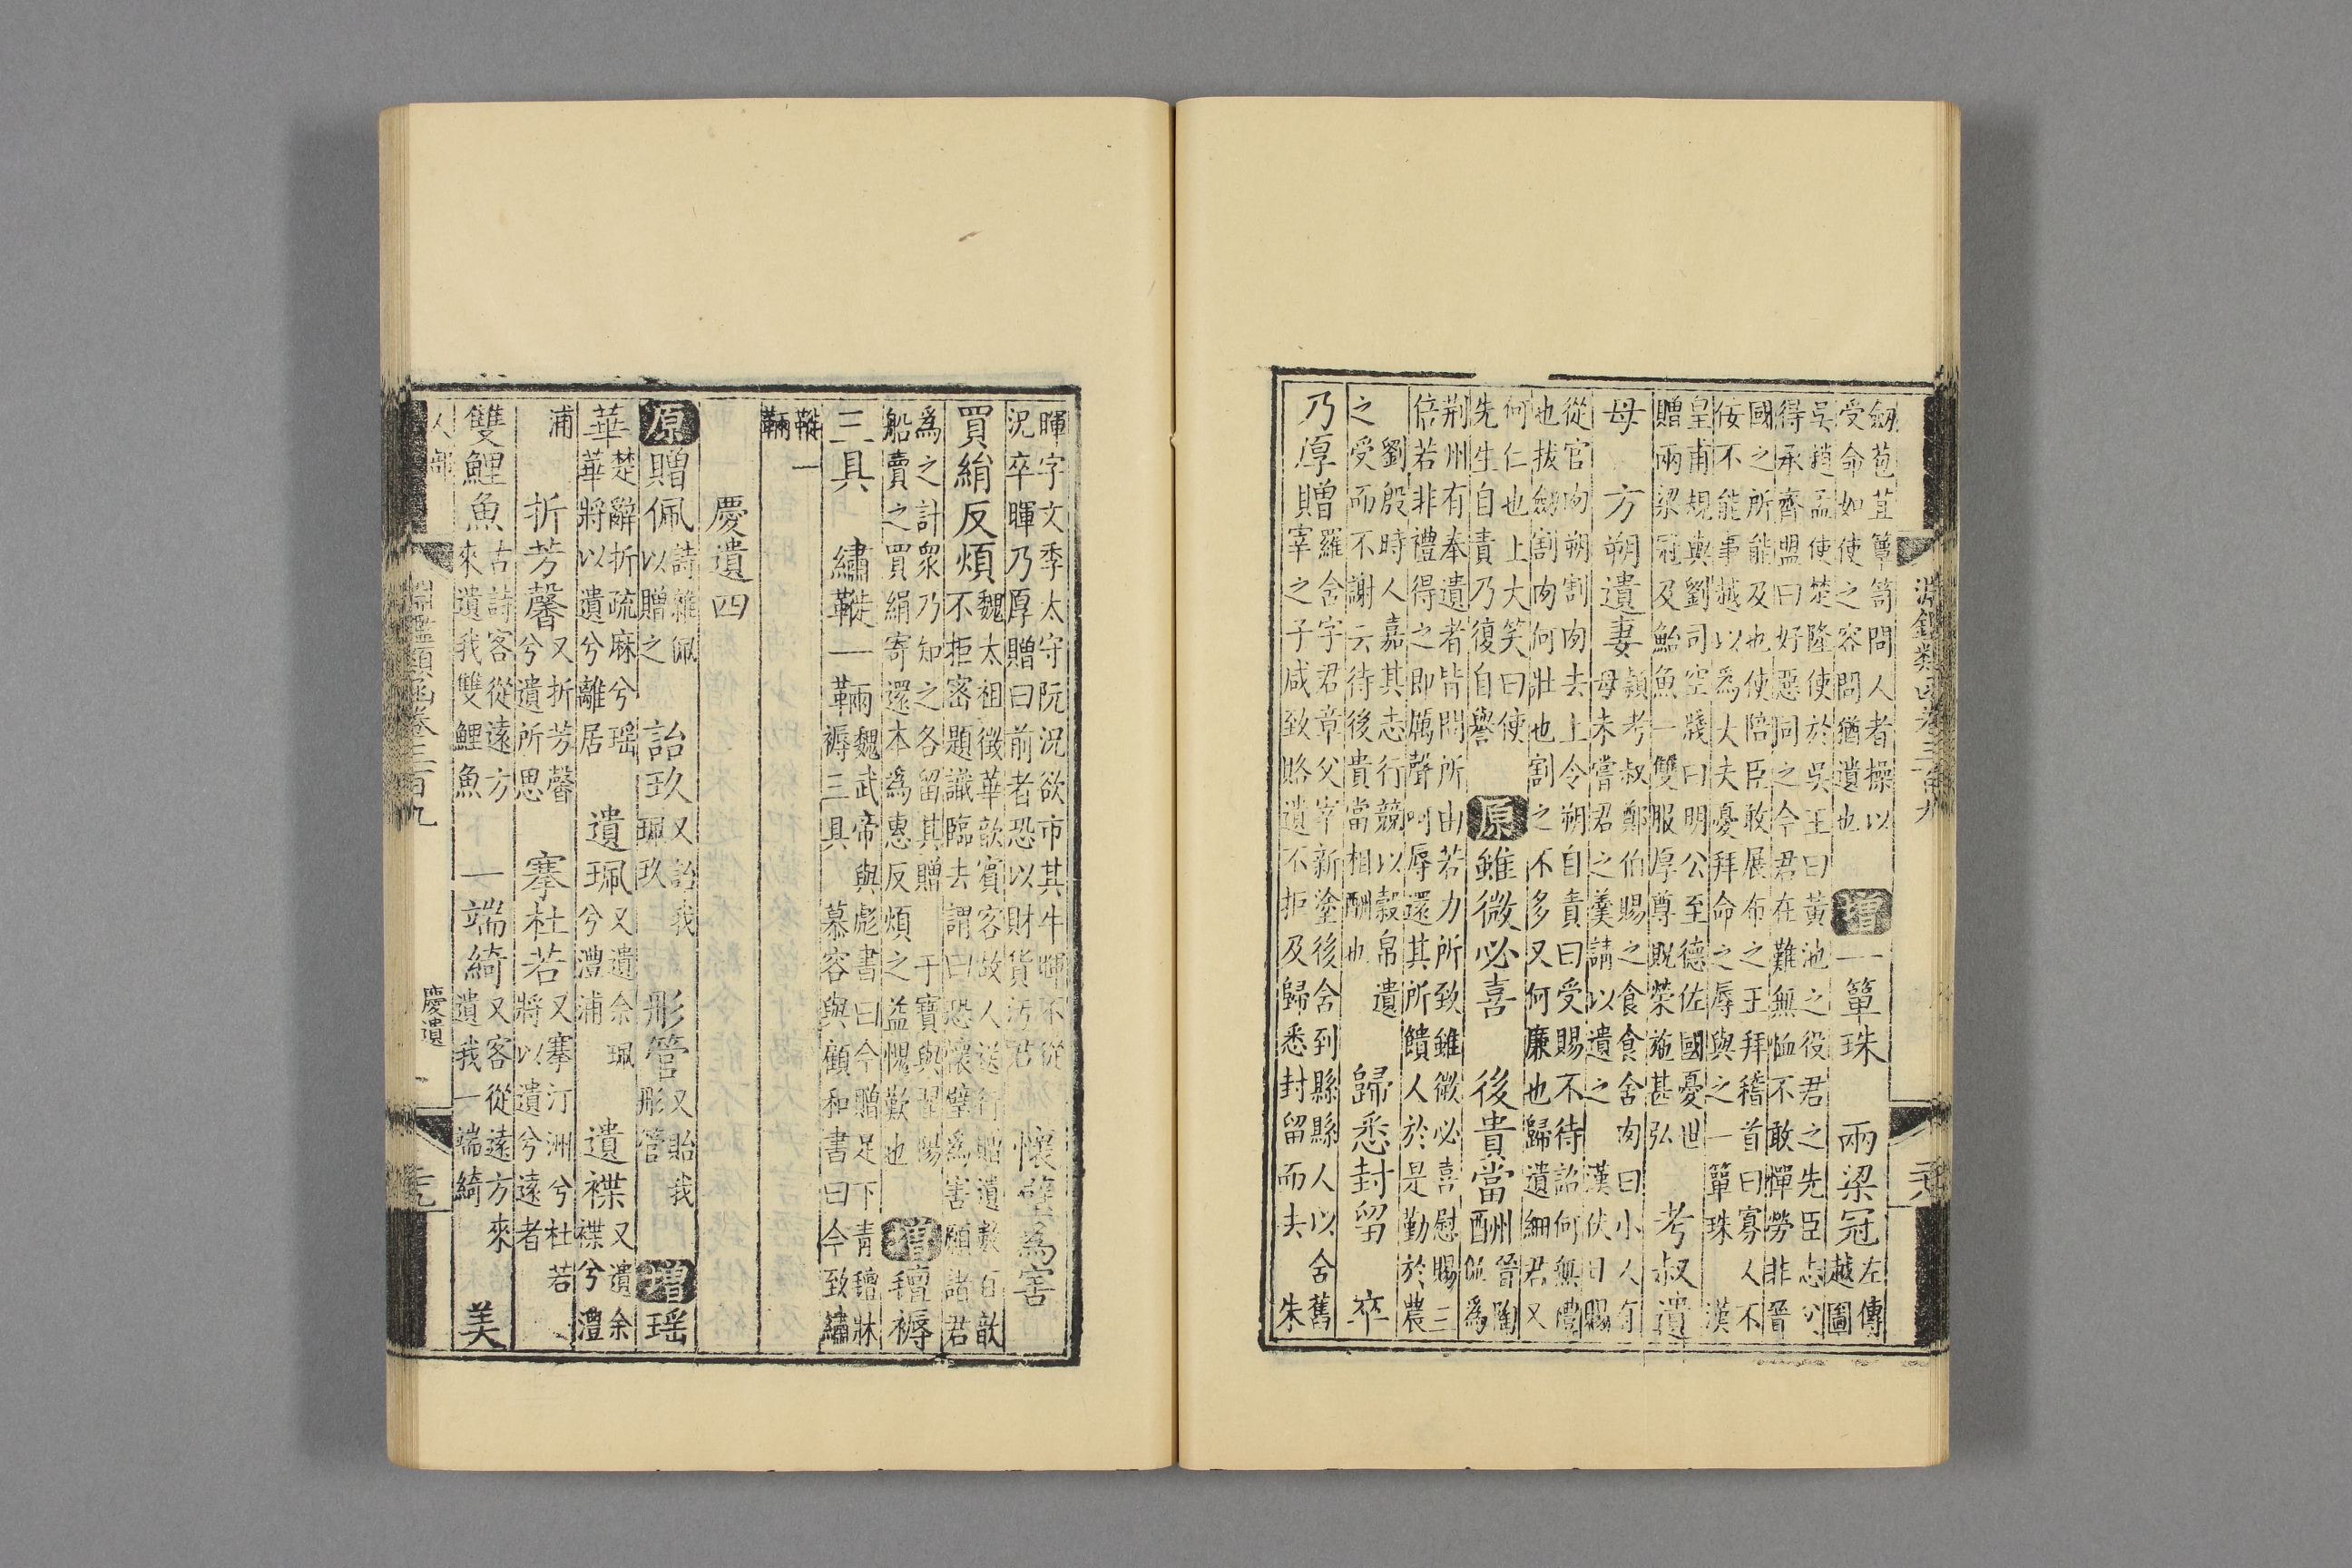 劒苞苴簞笥問人者操以
受命如使之容問猶遺也
增 一簞珠 兩梁冠
左傳
越圖
吳趙孟使楚隆使於吳王曰黃池之役君之先臣志父
得承齊盟曰好惡同之今君在難無恤不敢憚勞非晉
國之所能及也使陪臣敢展布之王拜稽首曰寡人不
佞不能事越以為大夫憂拜命之辱與之一簞珠 漢
皇甫規與劉司空牋曰明公至德佐國憂世
贈兩梁冠及鮐魚一雙服厚尊貺榮施甚弘
考叔遺
母 方朔遺妻
穎考叔鄭伯賜之食食舍肉曰小人有
母未嘗君之羹請以遺之 漢伏日賜
從官肉朔割肉去上令朔自責曰受賜不待詔何無禮
也拔劒割肉何壯也割之不多又何廉也歸遺細君又
何仁也上大笑曰使
先生自責乃復自譽
原 雖微必喜 後貴當酬
晉陶
侃為
荆州有奉遺者皆問所由若力所致雖微必喜慰賜三
倍若非禮得之即厲聲呵辱還其所饋人於是勤於農
劉殷時人嘉其志行競以穀帛遺
之受而不謝云待後貴當相酬也
歸悉封留 卒
乃厚贈
羅舍字君章父宰新塗後舍到縣縣人以舍舊
宰之子咸致賂遺不拒及歸悉封留而去 朱
暉字文季太守阮況欲市其牛暉不從
況卒暉乃厚贈曰前者恐以財貨汚君
懷璧為害
買絹反煩
魏太祖徵華歆賓客故人送行贈遺數百歆
不拒密題識臨去謂曰恐懷璧為害願諸君
為之計衆乃知之各留其贈 于寶與翟陽
船賣之買絹寄還本為惠反煩之益愧歎也
增 氊褥
三具 繡鞾一緉
魏武帝與彪書曰今贈足下青氊牀
褥三具 慕容與顧和書曰今致繡
鞾一
緉
慶遺四
原 贈佩
詩雜佩
以贈之
詒玖
又詒我
珮玖
彤管
又貽我
彤管
增 瑶
華
楚辭折疏麻兮瑶
華將以遺兮離居
遺珮
又遺余珮
兮澧浦
遺褋
又遺余
褋兮澧
浦
折芳馨
又折芳馨
兮遺所思
搴杜若
又搴汀洲兮杜若
將以遺兮遠者
雙鯉魚
古詩客從遠方
來遺我雙鯉魚
一端綺
又客從遠方來
遺我一端綺
美
人部
淵鑑類函卷三百九
慶遺